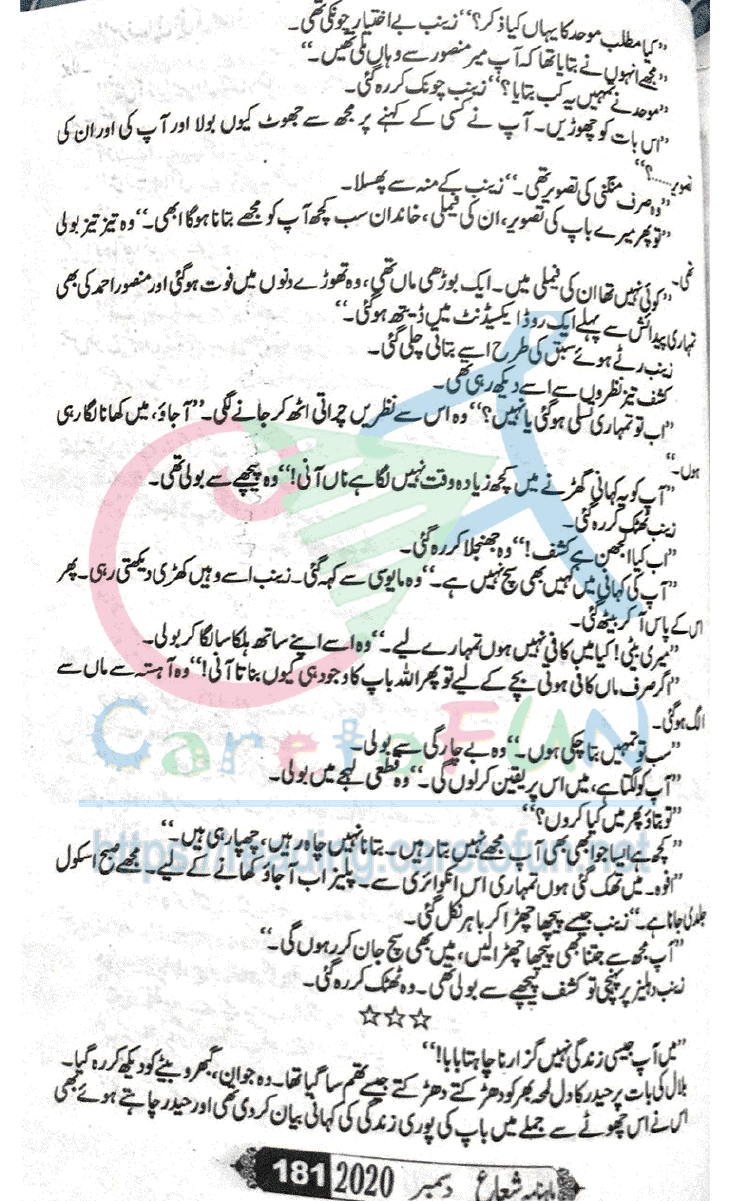 ”کیا مطلب موحد کا یہاں کیا ذکر؟“ زینب بے اختیار چونکی تھی۔
”مجھے انہوں نے بتایا تھا کہ آپ میر منصور سے وہاں ملی تھیں۔“
”موحد نے تمہیں یہ کب بتایا؟“ زینب چونک کر رہ گئی۔
”اس بات کو چھوڑیں۔ آپ نے کسی کے کہنے پر مجھ سے جھوٹ کیوں بولا اور آپ کی اور ان کی
تصویر......؟“
”وہ صرف منگنی کی تصویر تھی۔“ زینب کے منہ سے پھسلا۔
”تو پھر میرے باپ کی تصویر، ان کی فیملی، خاندان سب کچھ آپ کو مجھے بتانا ہوگا ابھی۔“ وہ تیز تیز بولی
تھی۔
”کوئی نہیں تھا ان کی فیملی میں۔ ایک بوڑھی ماں تھی، وہ تھوڑے دنوں میں فوت ہوگئی اور منصور احمد کی بھی
تمہاری پیدائش سے پہلے ایک روڈ ایکسیڈنٹ میں ڈیتھ ہوگئی۔“
زینب رٹے ہوئے سبق کی طرح اسے بتاتی چلی گئی۔
کشف تیز نظروں سے اسے دیکھ رہی تھی۔
”اب تو تمہاری تسلی ہوگئی یا نہیں؟“ وہ اس سے نظریں چراتی اٹھ کر جانے لگی۔ ”آ جاؤ، میں کھانا لگا رہی
ہوں۔“
”آپ کو یہ کہانی گھڑنے میں کچھ زیادہ وقت نہیں لگا ہے ناں آنی!“ وہ پیچھے سے بولی تھی۔
زینب ٹھٹک کر رہ گئی۔
”اب کیا الجھن ہے کشف!“ وہ جھنجلا کر رہ گئی۔
”آپ کی کہانی میں کہیں بھی سچ نہیں ہے۔“ وہ مایوسی سے کہہ گئی۔ زینب اسے وہیں کھڑی دیکھتی رہی۔ پھر
اس کے پاس آ کر بیٹھ گئی۔
”میری بیٹی! کیا میں کافی نہیں ہوں تمہارے لیے۔“ وہ اسے اپنے ساتھ ہلکا سا لگا کر بولی۔
”اگر صرف ماں کافی ہوتی بچے کے لیے تو پھر اللہ باپ کا وجود ہی کیوں بناتا آنی!“ وہ آہستہ سے ماں سے
الگ ہوگئی۔
”سب تو تمہیں بتا چکی ہوں۔“ وہ بے چارگی سے بولی۔
”آپ کو لگتا ہے، میں اس پر یقین کرلوں گی۔“ وہ قطعی لہجے میں بولی۔
”تو بتاؤ پھر میں کیا کروں؟“
”کچھ ہے ایسا جو ابھی بھی آپ مجھے نہیں بتا رہیں۔ بتانا نہیں چاہ رہیں، چھپا رہی ہیں۔“
”افوہ۔ میں تھک گئی ہوں تمہاری اس انکوائری سے۔ پلیز اب آ جاؤ کھانے کے لیے۔ مجھے صبح اسکول
جلدی جانا ہے۔“ زینب جیسے پیچھا چھڑا کر باہر نکل گئی۔
”آپ مجھ سے جتنا بھی پیچھا چھڑا لیں، میں بھی سچ جان کر رہوں گی۔“
زینب دہلیز پر پہنچی تو کشف پیچھے سے بولی تھی۔ وہ ٹھٹک کر رہ گئی۔
☆☆☆
”میں آپ جیسی زندگی نہیں گزارنا چاہتا بابا!“
بلال کی بات پر حیدر کا دل لمحہ بھر کو دھڑکتے دھڑکتے جیسے تھم سا گیا تھا۔ وہ جوان، گبھرو بیٹے کو دیکھ کر رہ گیا۔
اس نے اس چھوٹے سے جملے میں باپ کی پوری زندگی کی کہانی بیان کردی تھی اور حیدر چاہتے ہوئے بھی
ماہنامہ شعاع دسمبر 2020 181
CaretoFUN
https://reading.caretofun.net